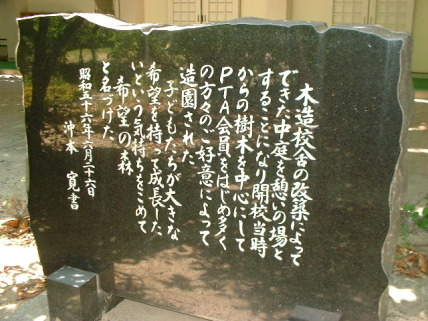 木造校舎の改築によって
できた中庭を憩いの場と
することになり開校当時
からの樹木を中心にして
PTA会員をはじめ多く
の方々のご好意によって
造園された
子どもたちが大きな
希望を持って成長した
いという気持ちをこめて
希望の森
と名づけた
昭和五十六年六月二十六日
沖本 寛書